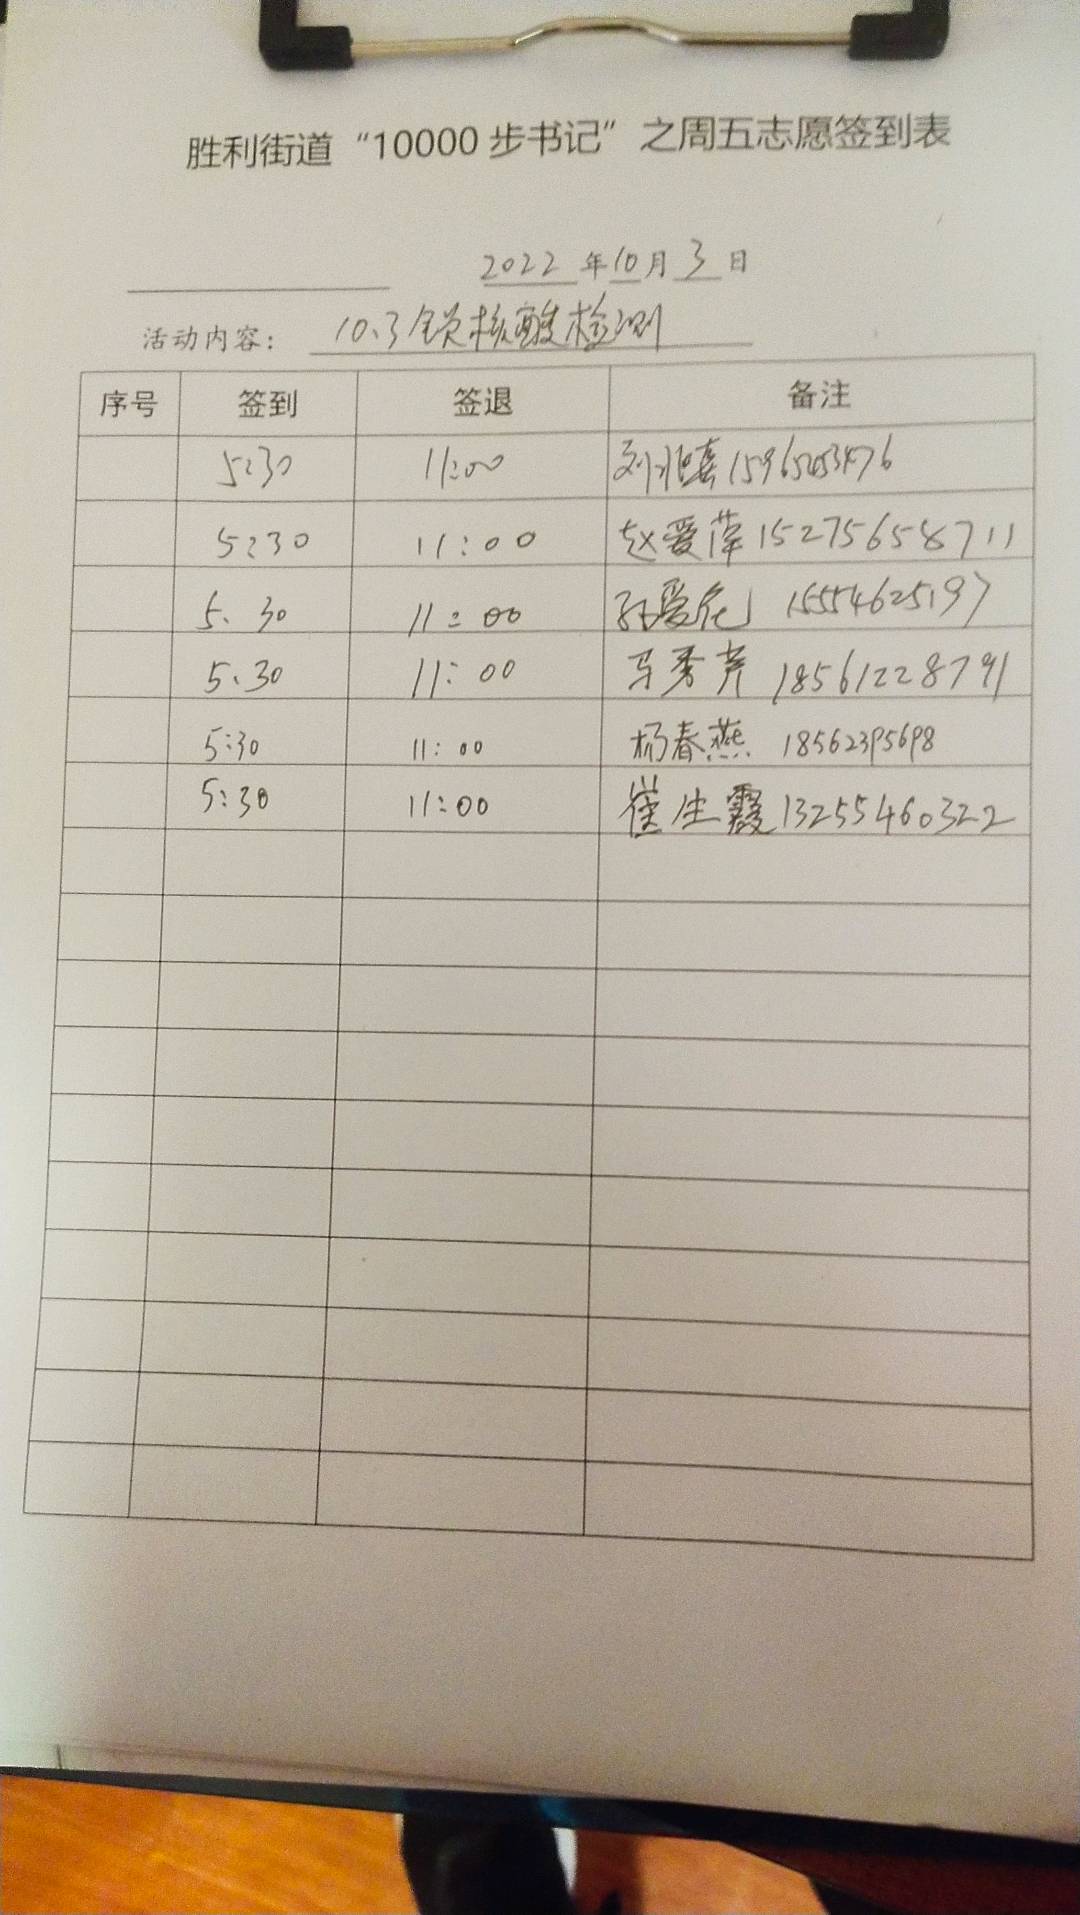 胜利街道“10000步书记”之周五志愿签到表
2022年10月3日
活动内容： 10.3全员核酸检测
序号 签到 签退 备注
5:30 11:00 刘 15965253476
5:30 11:00 赵爱萍 15275658711
5.30 11:00 孙爱花 15554625197
5.30 11:00 马秀芹 18561228791
5:30 11:00 杨春燕 18562395698
5:30 11:00 崔生霞 13255460322